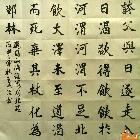 夸父與日逐走入
日渴欲得飲飲于
河渭河渭不足北
飲大澤未至道渴
而死棄其杖化為
鄧林